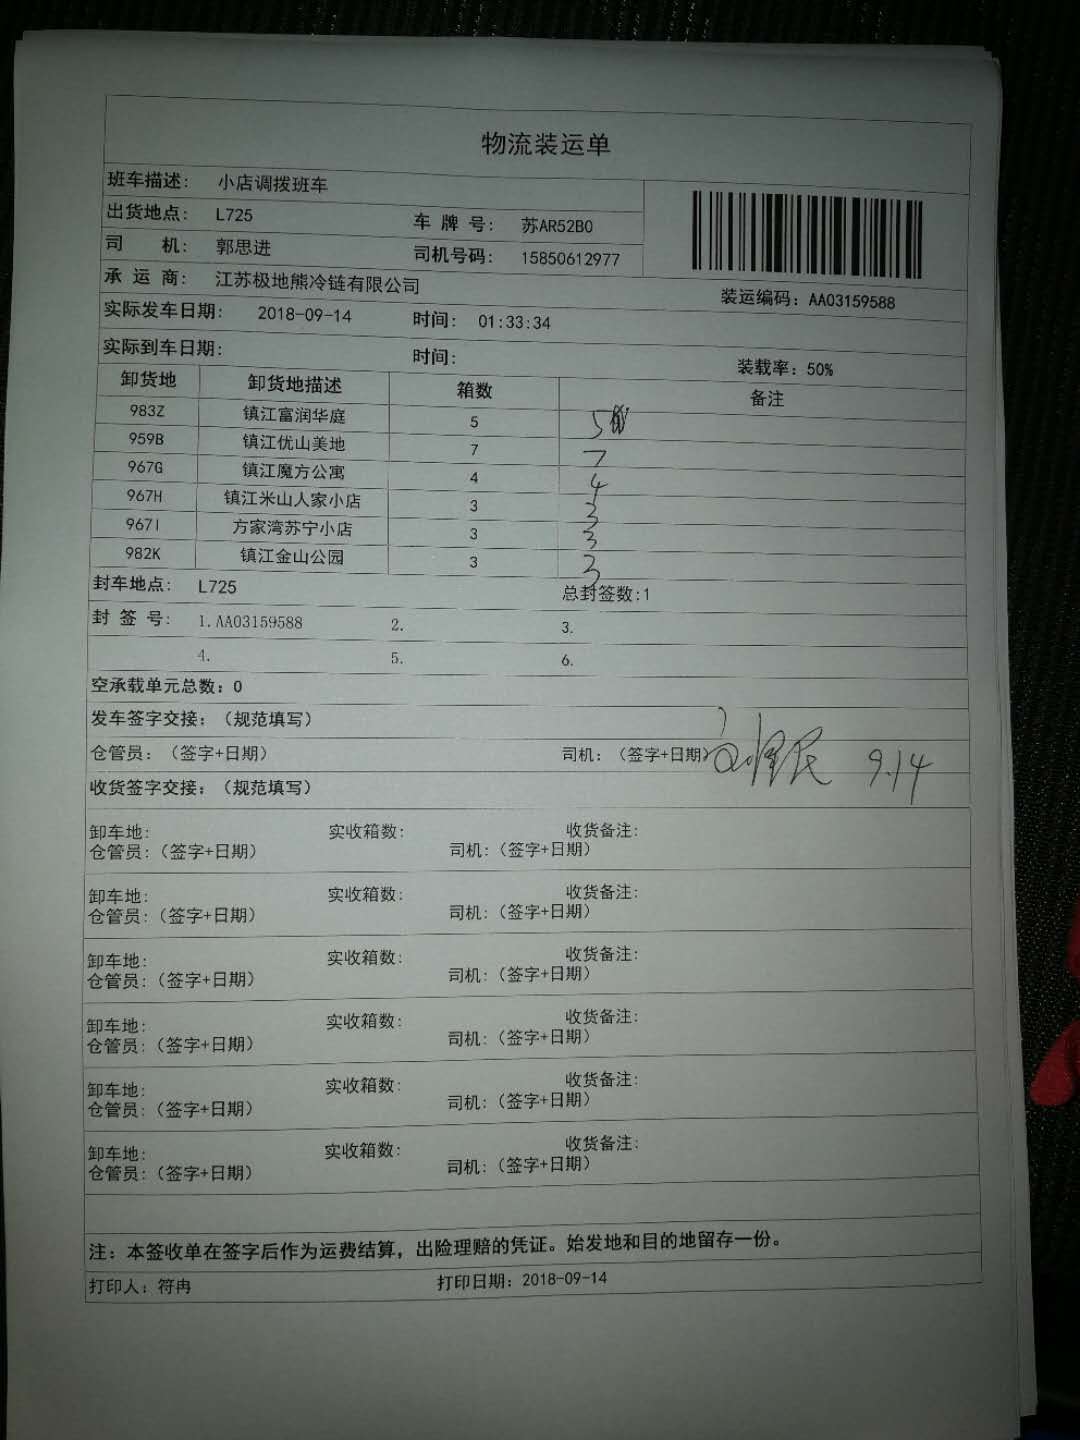 物流装运单
班车描述： 小店调拨班车
出货地点： L725 车 牌 号： 苏AR52B0
司 机： 郭思进 司机号码： 15850612977
承 运 商： 江苏极地熊冷链有限公司 装运编码：AA03159588
实际发车日期： 2018-09-14 时间： 01:33:34
实际到车日期： 时间： 装载率：50%
卸货地 卸货地描述 箱数 备注
983Z 镇江富润华庭 5 5
959B 镇江优山美地 7 7
967G 镇江魔方公寓 4 4
967H 镇江米山人家小店 3 3
967I 方家湾苏宁小店 3 3
982K 镇江金山公园 3 3
封车地点： L725 总封签数:1
封 签 号： 1.AA03159588 2. 3.
4. 5. 6.
空承载单元总数：0
发车签字交接：（规范填写）
仓管员：（签字+日期） 司机：（签字+日期） 9.14
收货签字交接：（规范填写）
卸车地: 实收箱数: 收货备注:
仓管员:（签字+日期） 司机:（签字+日期）
卸车地: 实收箱数: 收货备注:
仓管员:（签字+日期） 司机:（签字+日期）
卸车地: 实收箱数: 收货备注:
仓管员:（签字+日期） 司机:（签字+日期）
卸车地: 实收箱数: 收货备注:
仓管员:（签字+日期） 司机:（签字+日期）
卸车地: 实收箱数: 收货备注:
仓管员:（签字+日期） 司机:（签字+日期）
卸车地: 实收箱数: 收货备注:
仓管员:（签字+日期） 司机:（签字+日期）
注：本签收单在签字后作为运费结算，出险理赔的凭证。始发地和目的地留存一份。
打印人：符冉 打印日期：2018-09-14